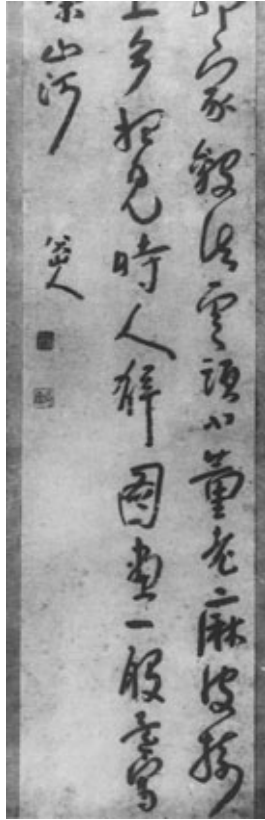 郭家皴法雲頭小董老麻皮樹
上多想見時人解圖畫一峰還寫
宋山河
八大山人